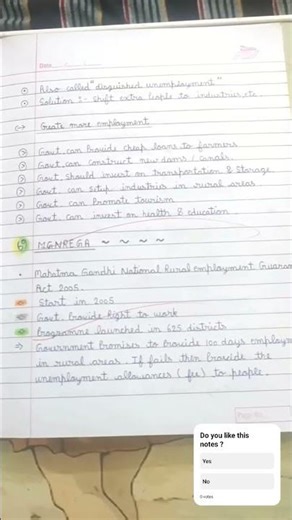 Date
Also called "disguished unemployment"
Solution :- Shift extra people to industries, etc.
Create more employment
Govt. can Provide cheap loans to farmers
Govt. can construct new dams / canals.
Govt. should invest on transportation & Storage
Govt. can setup industries in rural areas
Govt. can Promote tourism
Govt. can invest on health & education
6) MGNREGA ~ ~ ~ ~
Mahatma Gandhi National Rural employment Guaran
Act 2005.
Start in 2005
Govt. Provide Right to work
Programme launched in 625 districts
Government Promises to Provide 100 days employm
in rural areas. If fails then Provide the
unemployment allowances (fee) to people.
Do you like this
notes ?
Yes
No
0 votes